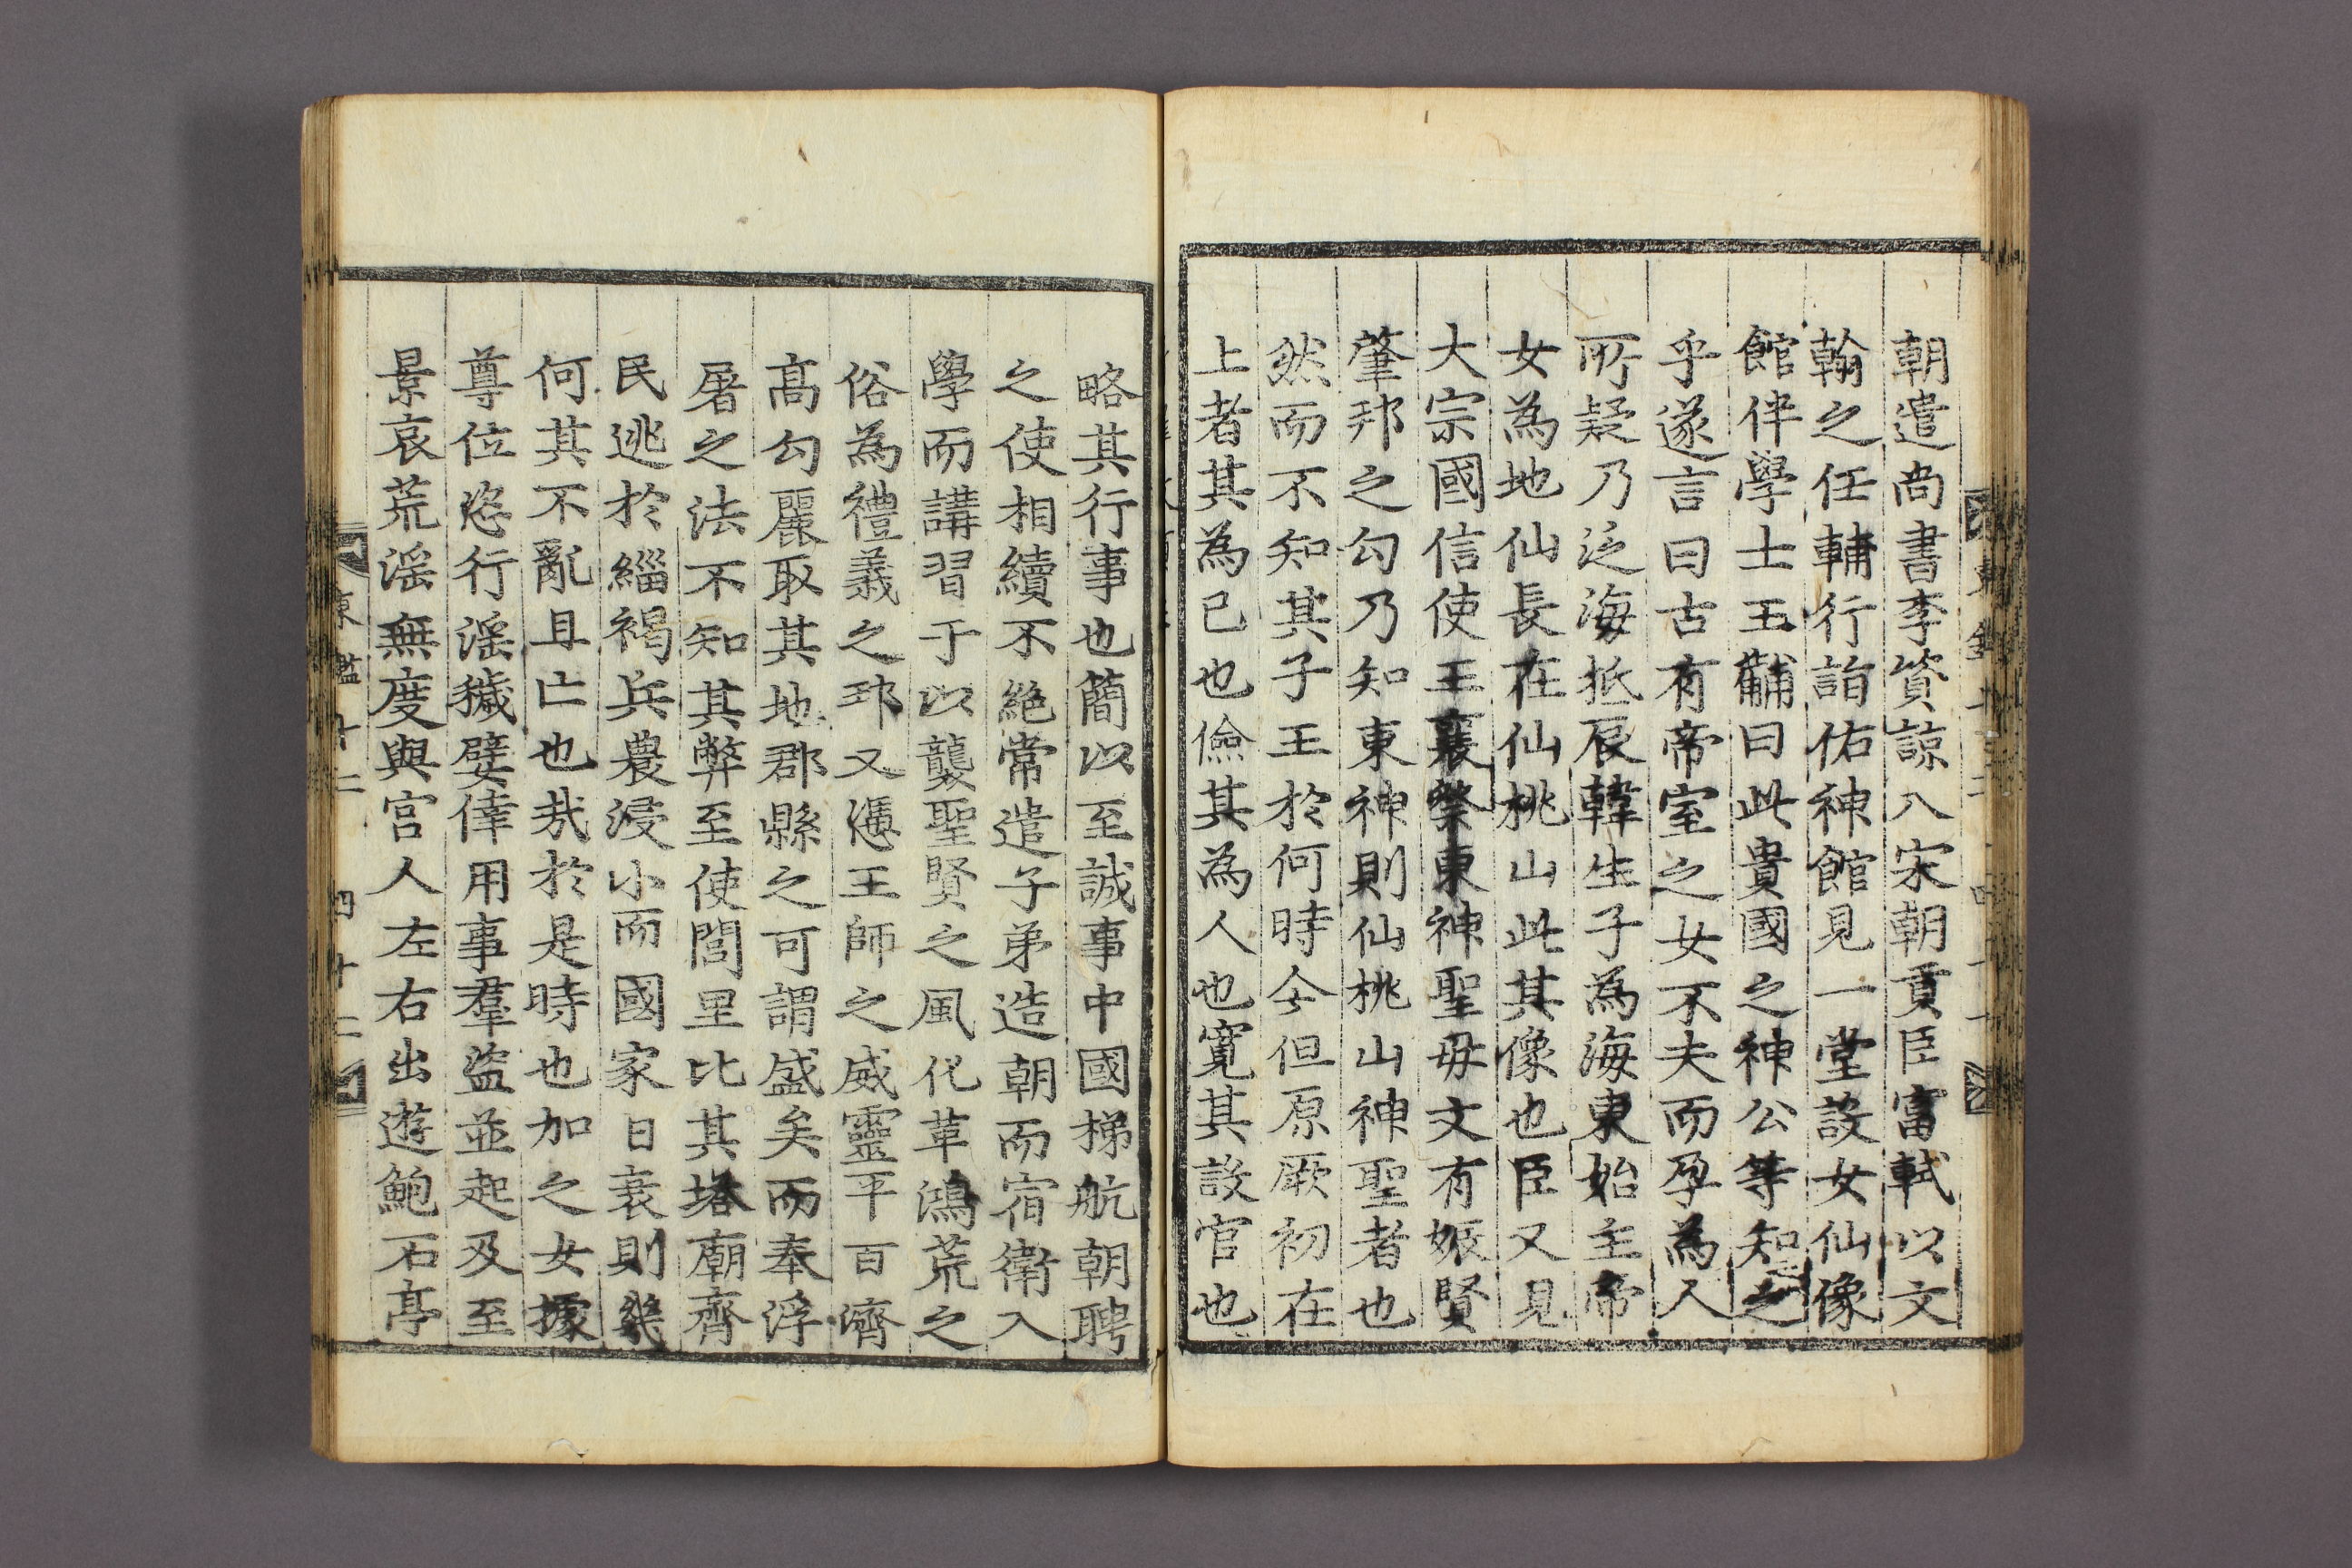 朝遣尚書李資諒入宋朝貢臣富軾以文
翰之任輔行詣佑神館見一堂設女仙像
館伴學士王黼曰此貴國之神公等知之
乎遂言曰古有帝室之女不夫而孕為人
所疑乃泛海抵辰韓生子為海東始主帝
女為地仙長在仙桃山此其像也臣又見
大宗國信使王襄祭東神聖母文有娠賢
肇邦之句乃知東神則仙桃山神聖者也
然而不知其子王於何時今但原厥初在
上者其為已也儉其為人也寬其設官也
略其行事也簡以至誠事中國梯航朝聘
之使相續不絕常遣子弟造朝而宿衛入
學而講習于以襲聖賢之風化革鴻荒之
俗為禮義之邦又憑王師之威靈平百濟
高勾麗取其地郡縣之可謂盛矣而奉浮
屠之法不知其弊至使閭里比其塔廟齊
民逃於緇褐兵農浸小而國家日衰則幾
何其不亂且亡也哉於是時也加之女據
尊位恣行淫穢嬖倖用事羣盜並起及至
景哀荒淫無度與宮人左右出遊鮑石亭
東鑑十二 四十二